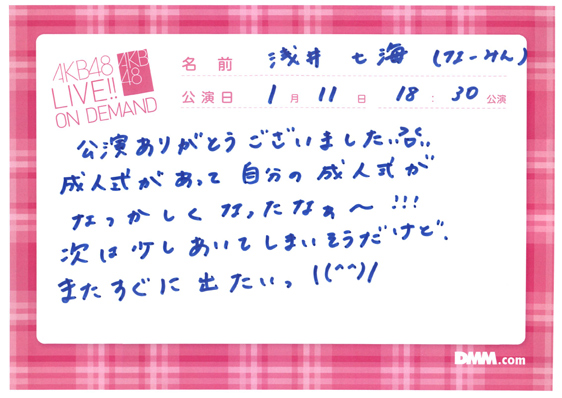 AKB48
LIVE!!
ON DEMAND
AKB
48
名 前 浅井 七海 (なーみん)
公演日 1 月 11 日 18 : 30 公演
公演ありがとうございました
成人式があって 自分の成人式が
なつかしく なったなぁ〜 !!!
次は少しあいてしまいそうだけど、
またすぐに 出たいっ ((^^)/
DMM.com